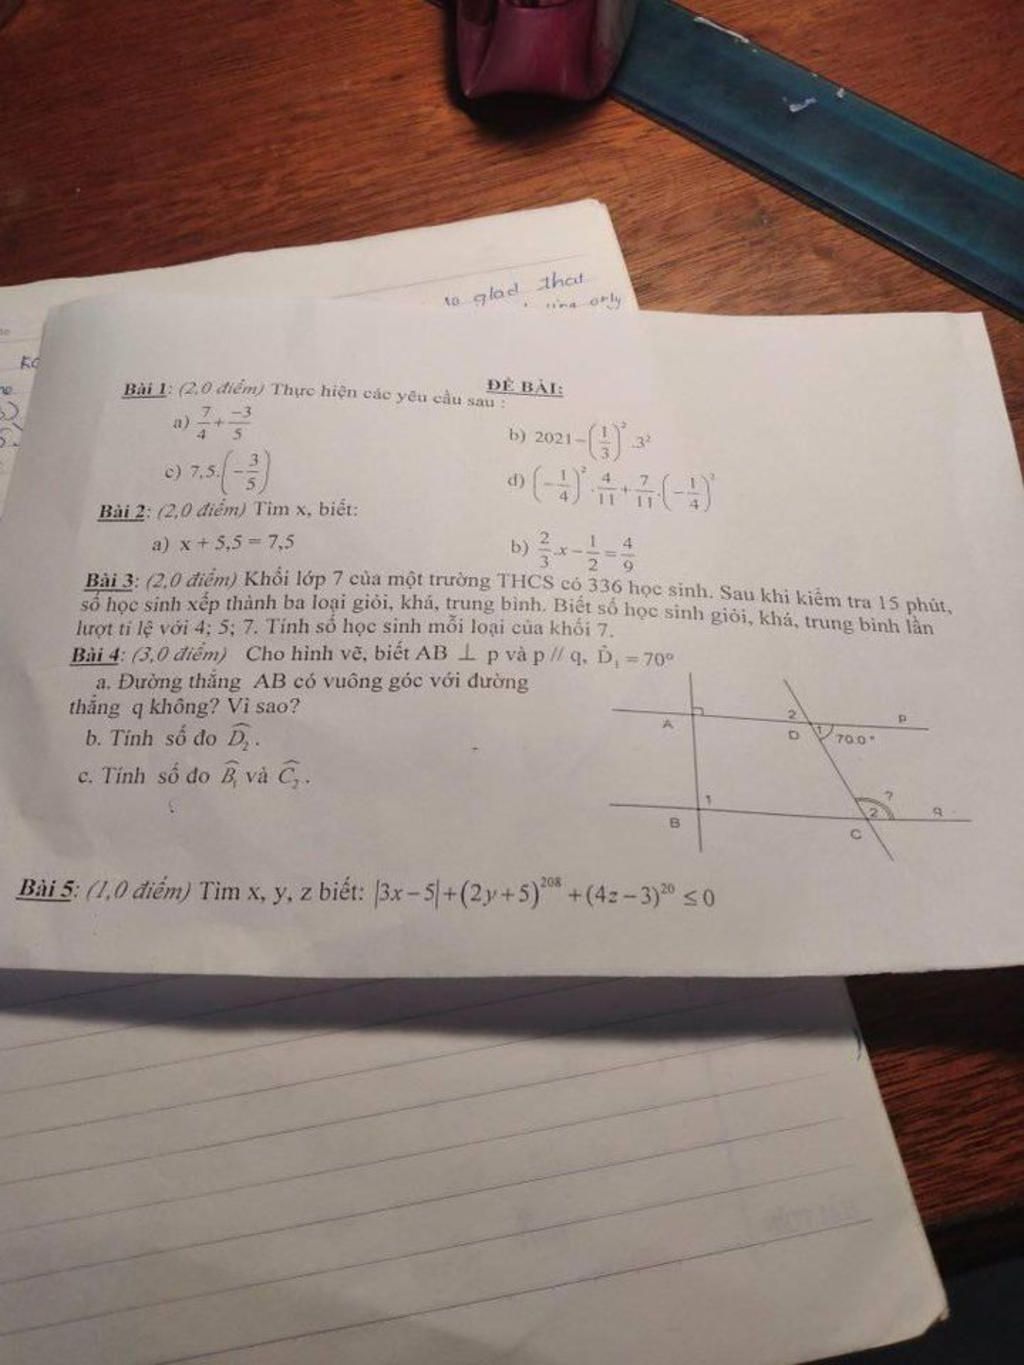 to glad that
only
ĐỀ BÀI:
Bài 1: (2,0 điểm) Thực hiện các yêu cầu sau :
a) 7/4 + -3/5
b) 2021 - (1/3)² .3²
c) 7,5.(-3/5)
d) (-1/4)² . 4/11 + 7/11 . (-1/4)²
Bài 2: (2,0 điểm) Tìm x, biết:
a) x + 5,5 = 7,5
b) 2/3 .x - 1/2 = 4/9
Bài 3: (2,0 điểm) Khối lớp 7 của một trường THCS có 336 học sinh. Sau khi kiểm tra 15 phút,
số học sinh xếp thành ba loại giỏi, khá, trung bình. Biết số học sinh giỏi, khá, trung bình lần
lượt tỉ lệ với 4; 5; 7. Tính số học sinh mỗi loại của khối 7.
Bài 4: (3,0 điểm) Cho hình vẽ, biết AB ⊥ p và p // q, D̂₁ = 70°
a. Đường thẳng AB có vuông góc với đường
thẳng q không? Vì sao?
b. Tính số đo D̂₂ .
c. Tính số đo B̂₁ và Ĉ₂ .
A
2
D
1
70.0°
p
B
1
?
2
C
q
Bài 5: (1,0 điểm) Tìm x, y, z biết: |3x - 5| + (2y + 5)²⁰⁸ + (4z - 3)²⁰ ≤ 0